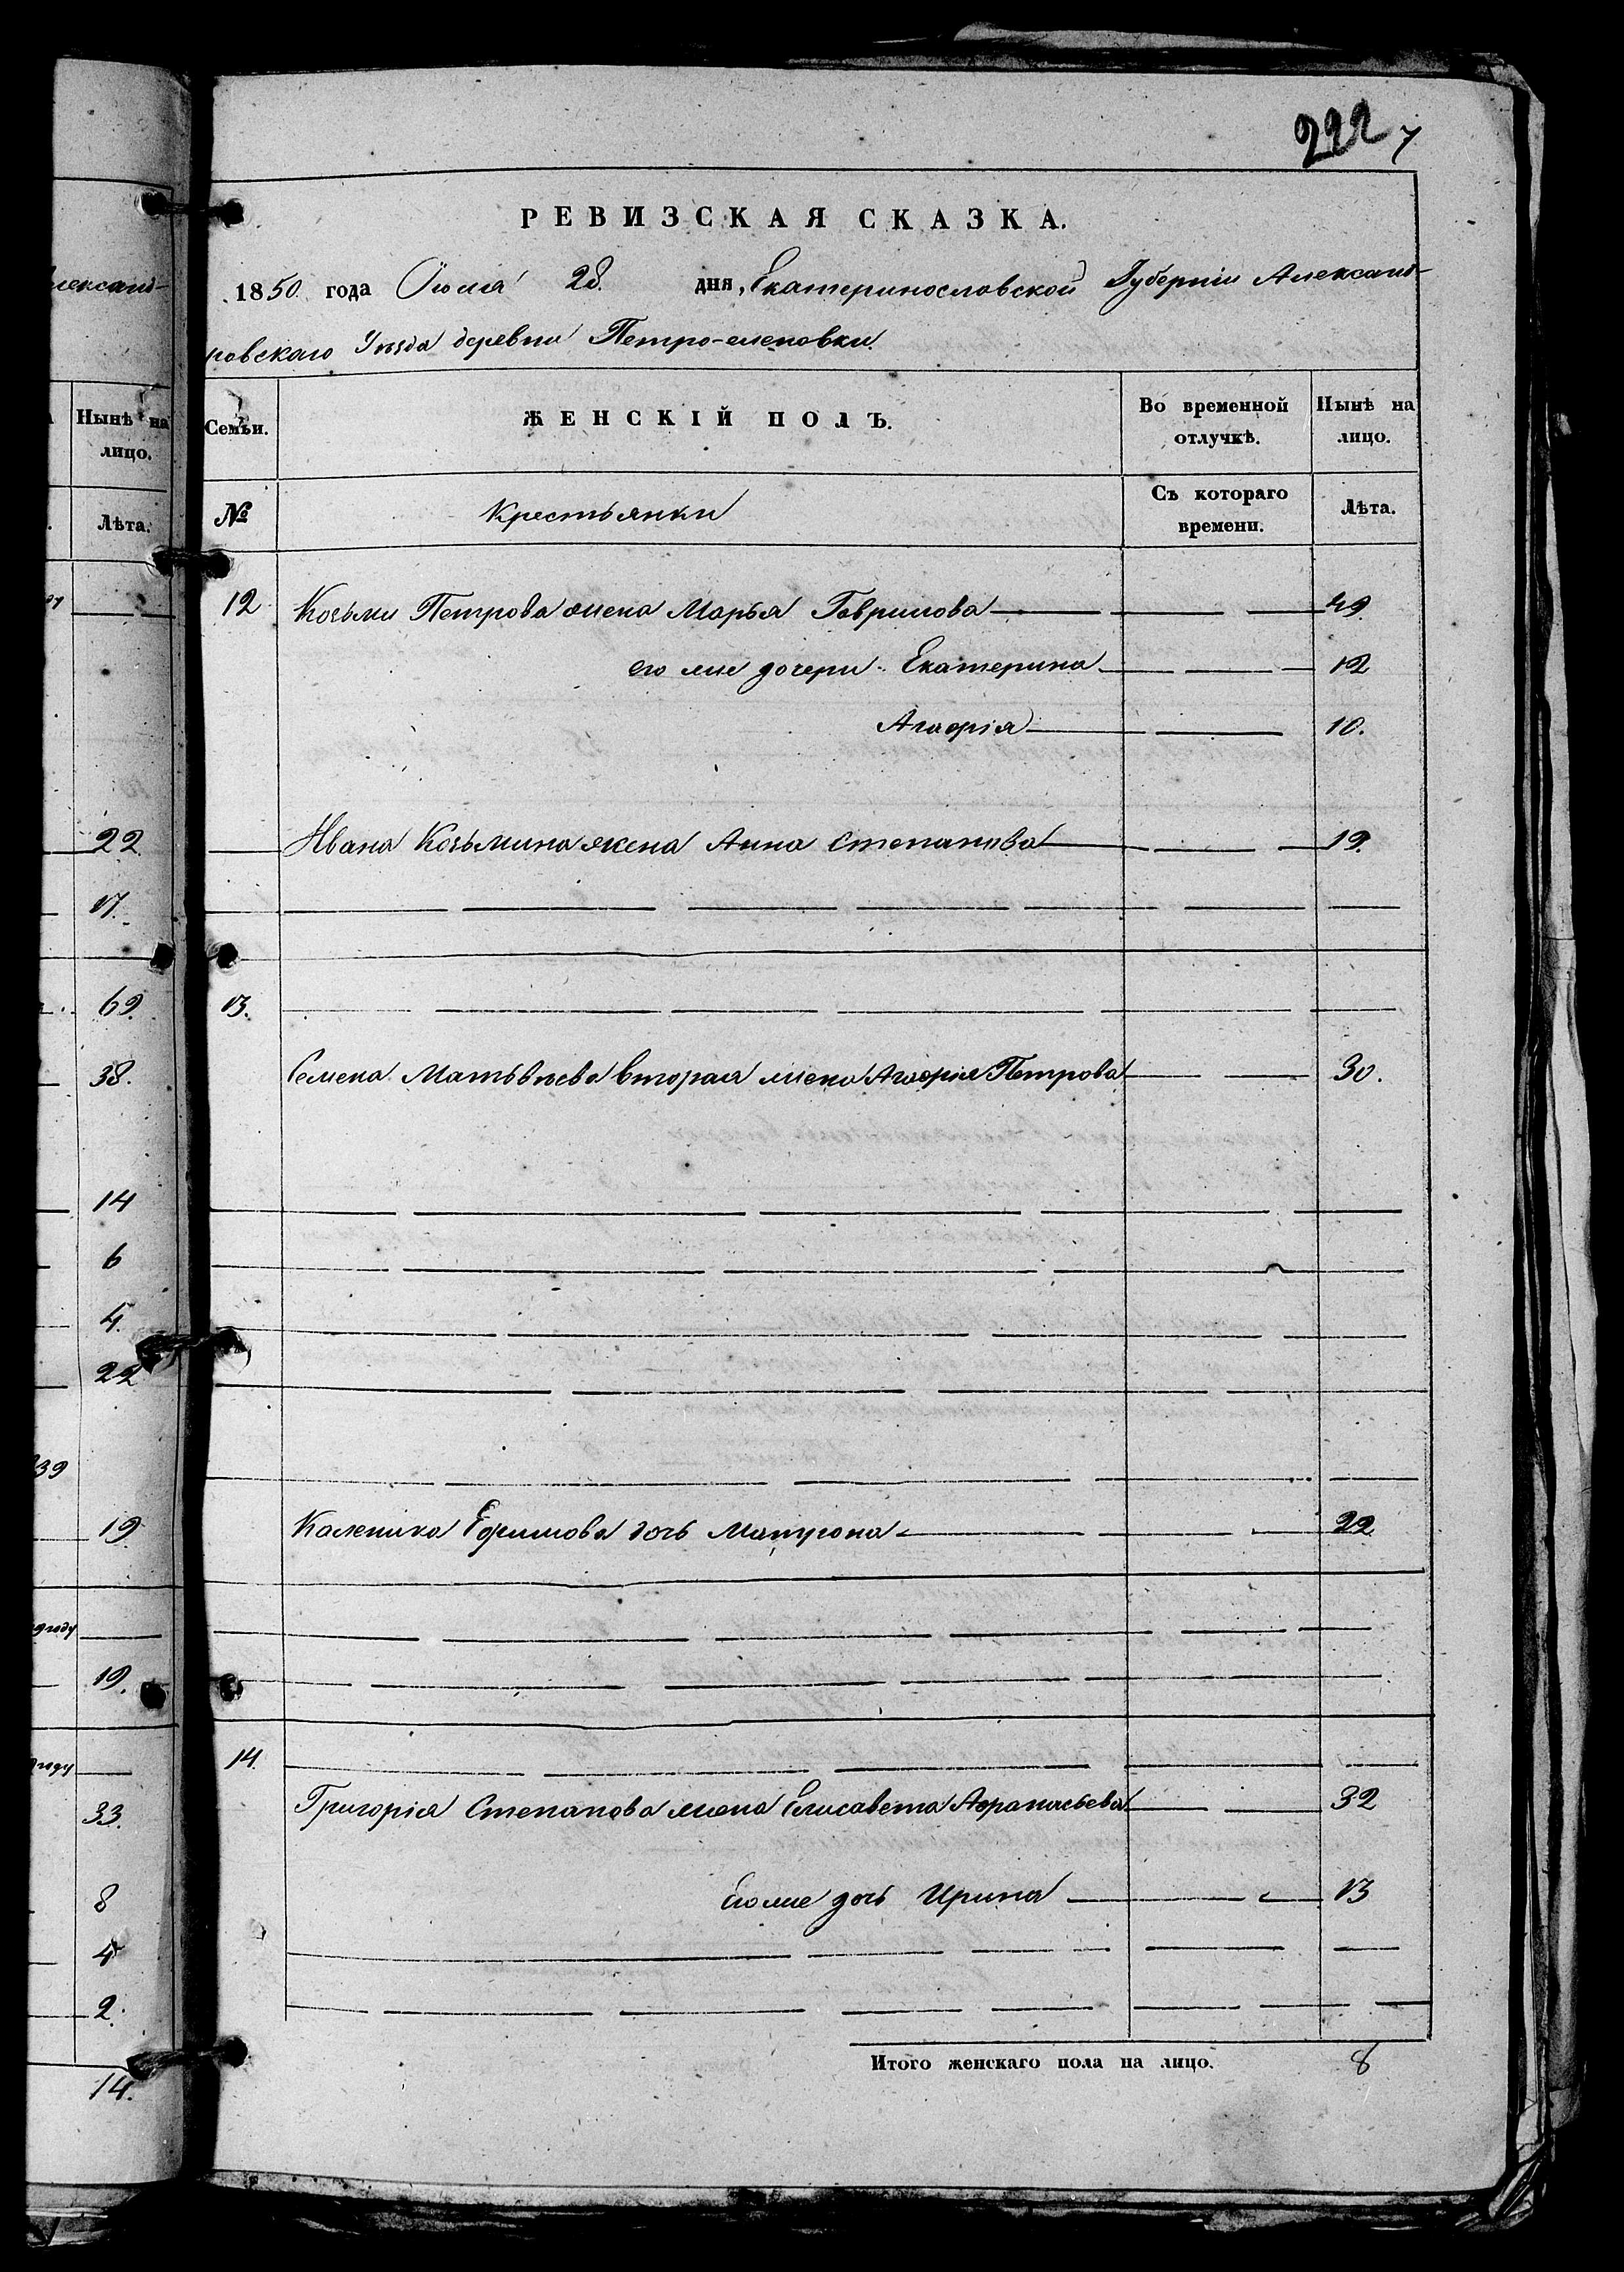 222 7
РЕВИЗСКАЯ СКАЗКА.
1850 года Июля 28. дня, Екатеринославской Губерніи Александ-
ровскаго Уѣзда деревни Петро-еленовки.
Семьи.
ЖЕНСКІЙ ПОЛЪ.
Во временной отлучкѣ.
Нынѣ на лицо.
№
Крестьянки
Съ котораго времени.
Лѣта.
12 Козьмы Петрова жена Марья Гаврилова 49.
его же дочери Екатерина 12
Агафія 10.
Ивана Козьмина жена Анна Степанова 19.
13.
Семена Матьвѣева вторая жена Агафія Петрова 30.
Каленика Ефимова дочь Матрона 22
14.
Григорія Степанова жена Елисавета Афанасьева 32
Его же дочь Ирина 13
Итого женскаго пола на лицо. 8
лександ-
Нынѣ на
лицо.
Лѣта.
22.
17.
69.
38.
14
6
4.
22
39
19.
году
19.
году
33.
8
4
2.
14.